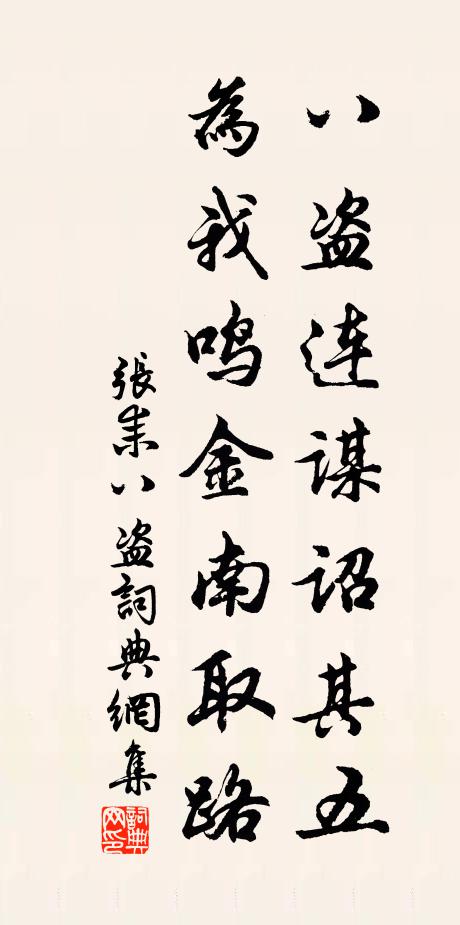 八盗连谋诏其五
為我鸣金南取路
張耒八盗詞典網集
詞典网印